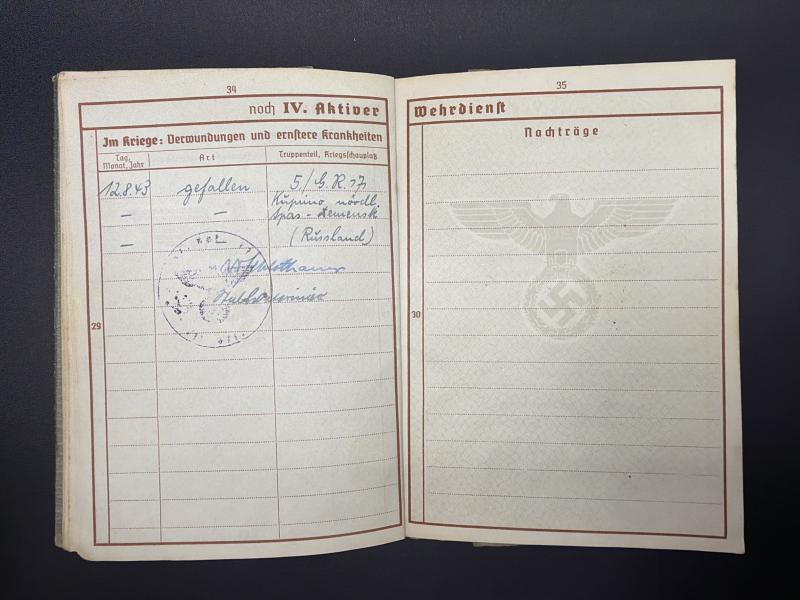 34
noch IV. Aktiver
Im Kriege: Verwundungen und ernstere Krankheiten
Tag, Monat, Jahr
Art
Truppenteil, Kriegsschauplatz
12.8.43 gefallen 5./G.R. 17,
— — Kupino nördl.
Spas-Demensk
— (Russland)
29
35
Wehrdienst
Nachträge
30